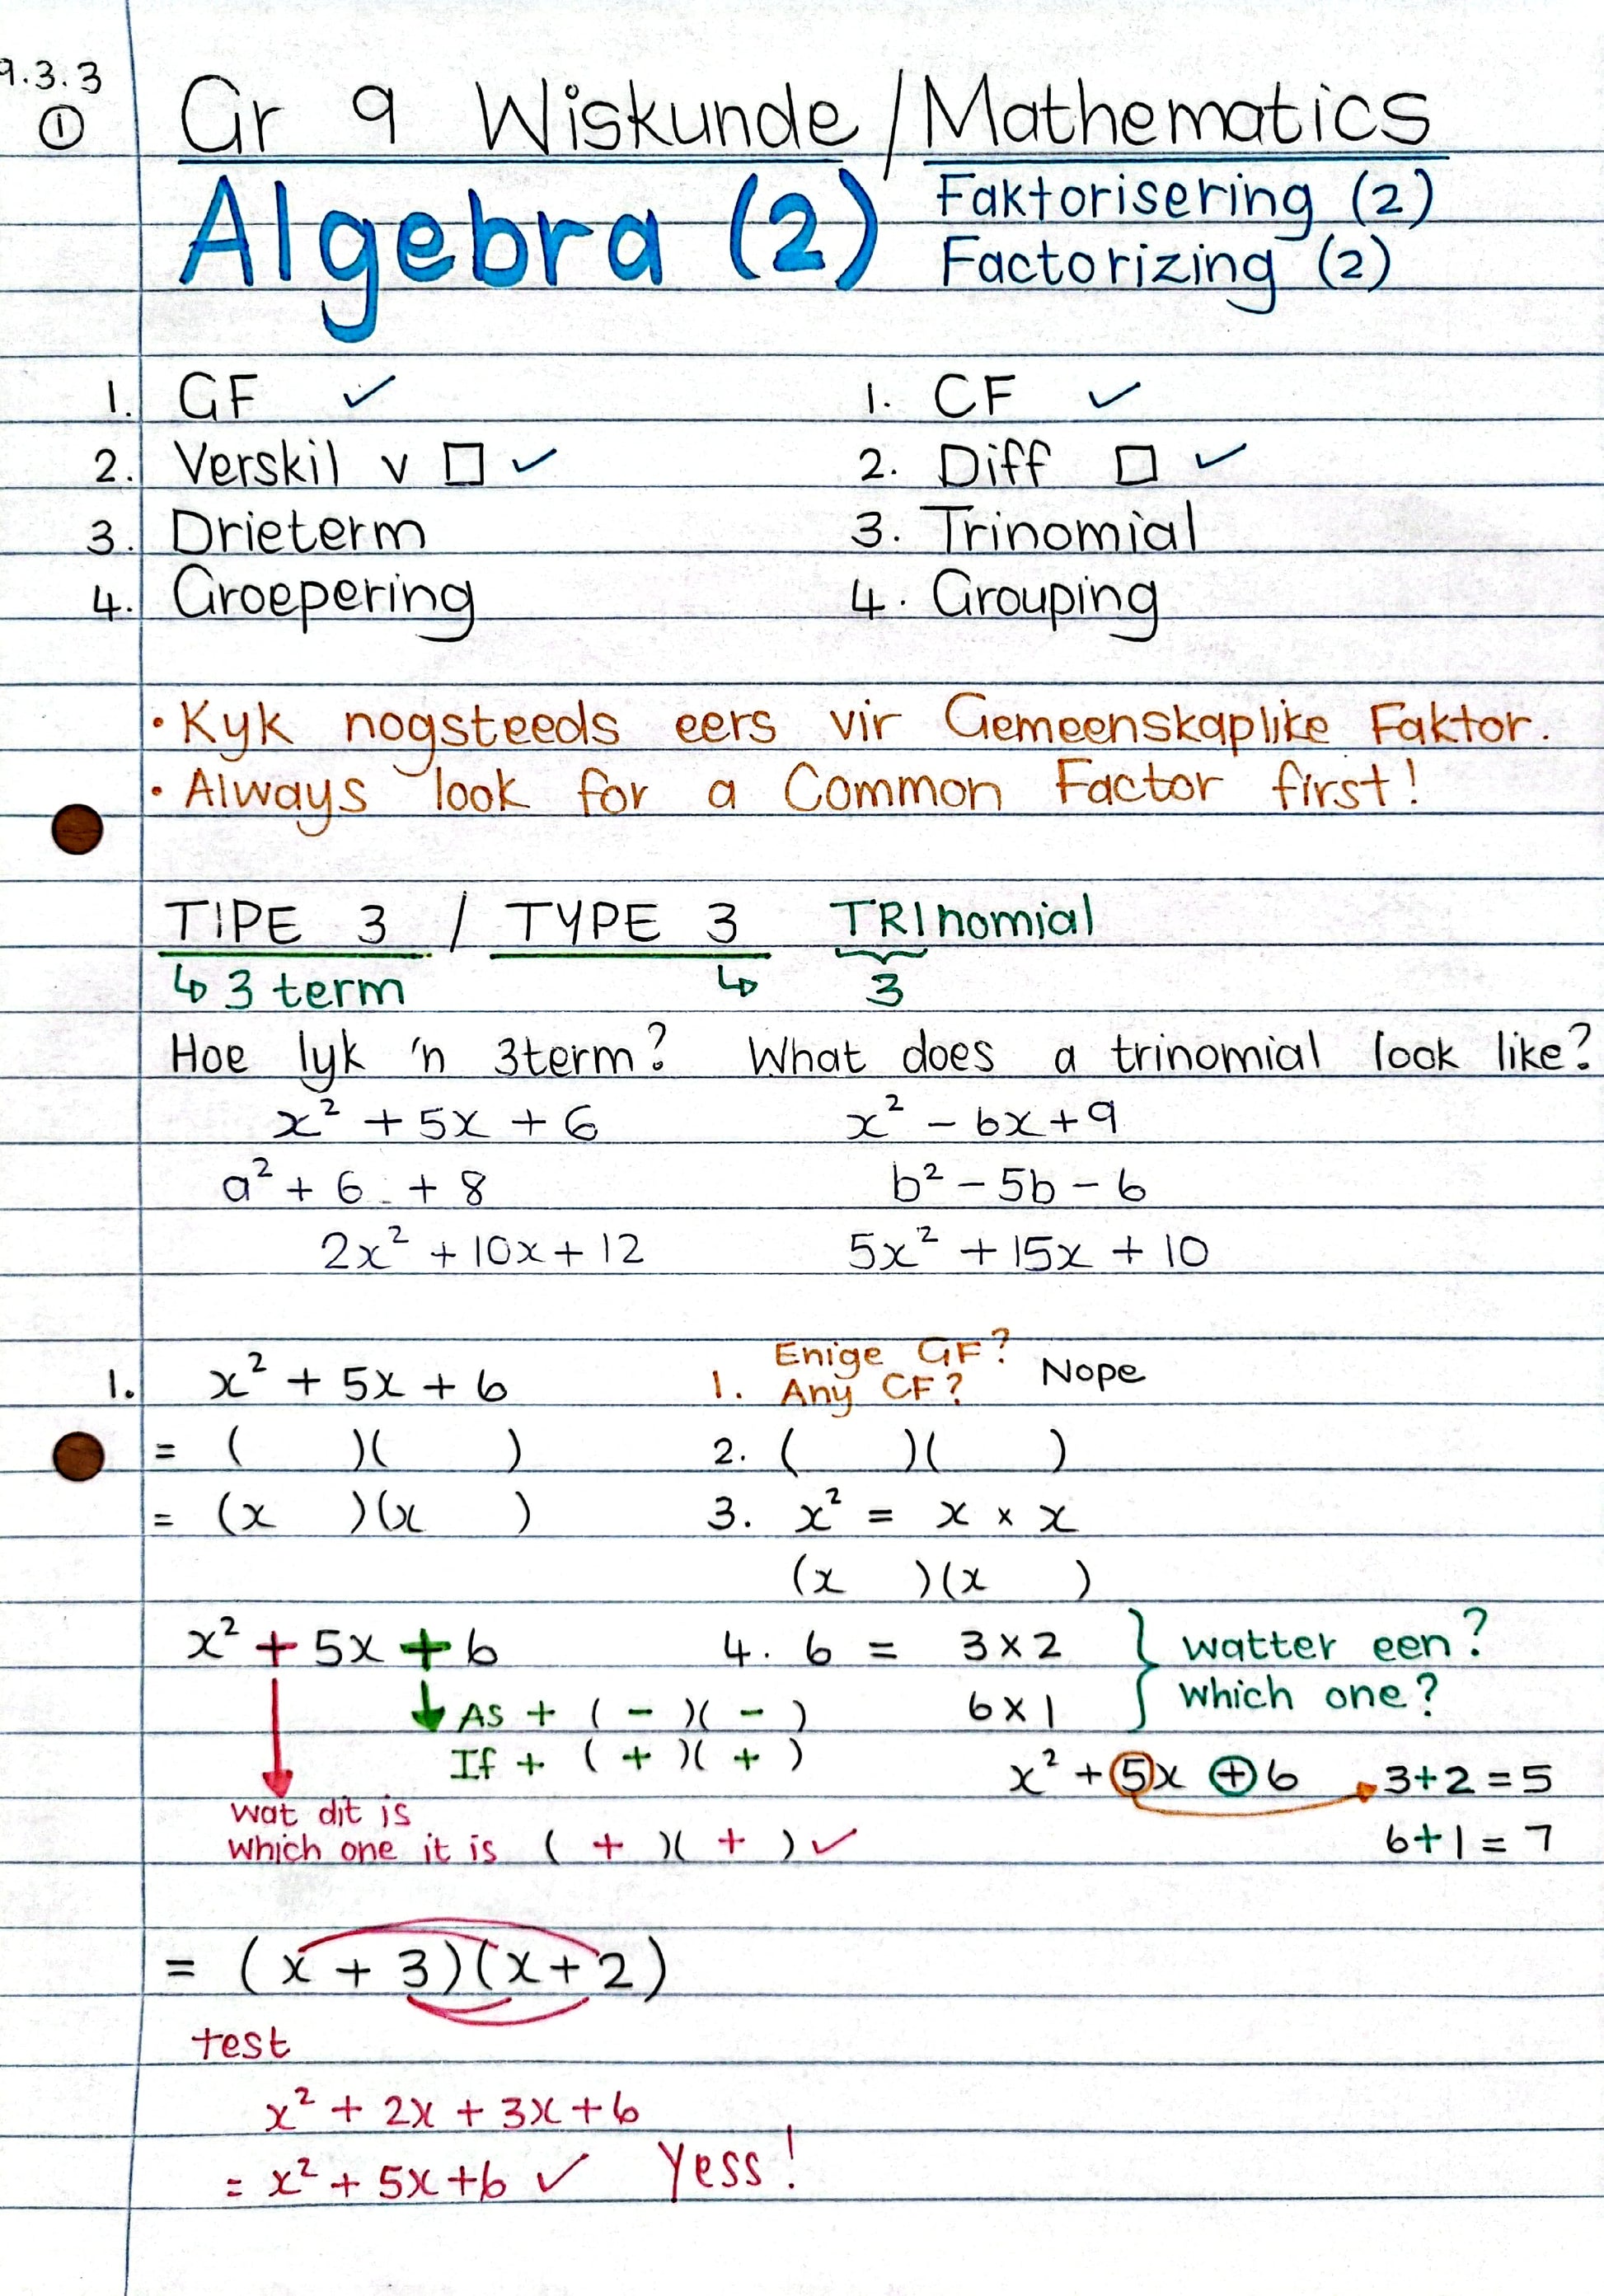 9.3.3
①
Gr 9 Wiskunde / Mathematics
Algebra (2)
Faktorisering (2)
Factorizing (2)
1. GF ✓
2. Verskil v □ ✓
3. Drieterm
4. Groepering
1. CF ✓
2. Diff □ ✓
3. Trinomial
4. Grouping
• Kyk nogsteeds eers vir Gemeenskaplike Faktor.
• Always look for a Common Factor first!
TIPE 3 / TYPE 3 TRInomial
↳ 3 term ↳ 3
Hoe lyk 'n 3term? What does a trinomial look like?
x² + 5x + 6 x² - 6x + 9
a² + 6 + 8 b² - 5b - 6
2x² + 10x + 12 5x² + 15x + 10
1. x² + 5x + 6
= ( )( )
= (x )(x )
1. Enige GF?
Any CF? Nope
2. ( )( )
3. x² = x × x
(x )(x )
x² + 5x + 6
↓ As + ( - )( - )
If + ( + )( + )
wat dit is
which one it is ( + )( + ) ✓
4. 6 = 3 × 2 } watter een?
6 × 1 which one?
x² + 5x + 6 3+2 = 5
6+1 = 7
= (x + 3)(x + 2)
test
x² + 2x + 3x + 6
= x² + 5x + 6 ✓ Yess!